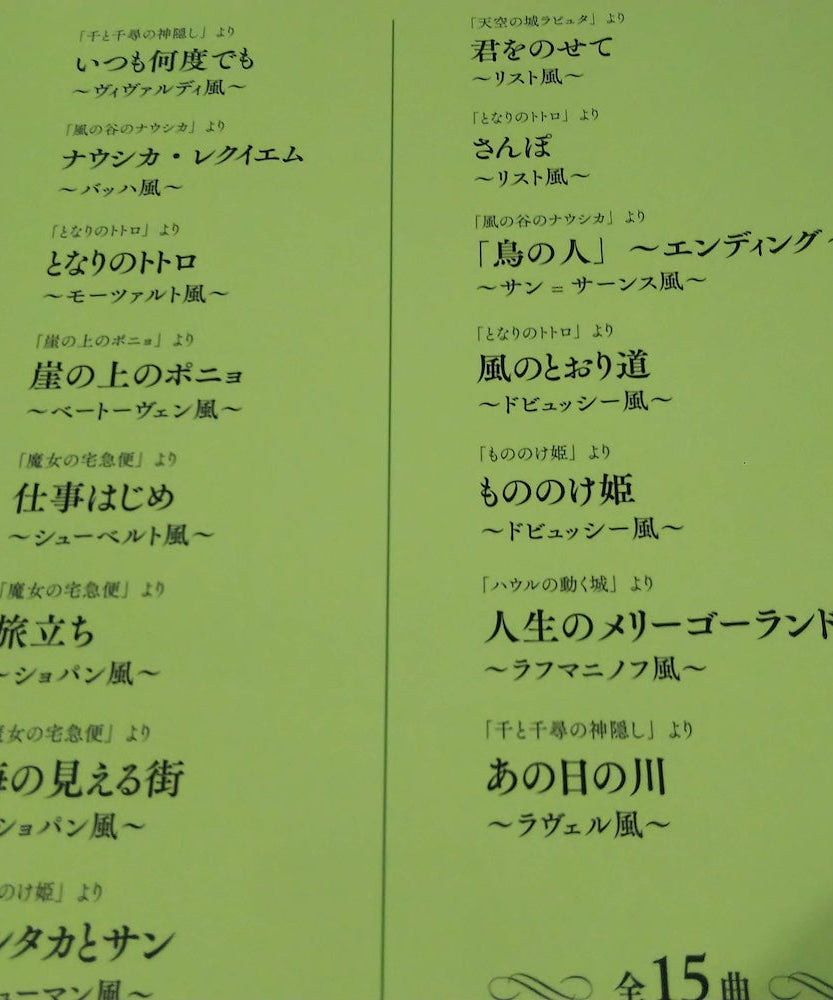 「千と千尋の神隠し」より
いつも何度でも
～ヴィヴァルディ風～
「風の谷のナウシカ」より
ナウシカ・レクイエム
～バッハ風～
「となりのトトロ」より
となりのトトロ
～モーツァルト風～
「崖の上のポニョ」より
崖の上のポニョ
～ベートーヴェン風～
「魔女の宅急便」より
仕事はじめ
～シューベルト風～
「魔女の宅急便」より
旅立ち
～ショパン風～
女の宅急便」より
の見える街
ショパン風～
のけ姫」より
タカとサン
ューマン風～
「天空の城ラピュタ」より
君をのせて
～リスト風～
「となりのトトロ」より
さんぽ
～リスト風～
「風の谷のナウシカ」より
「鳥の人」～エンディング～
～サン＝サーンス風～
「となりのトトロ」より
風のとおり道
～ドビュッシー風～
「もののけ姫」より
もののけ姫
～ドビュッシー風～
「ハウルの動く城」より
人生のメリーゴーランド
～ラフマニノフ風～
「千と千尋の神隠し」より
あの日の川
～ラヴェル風～
全15曲